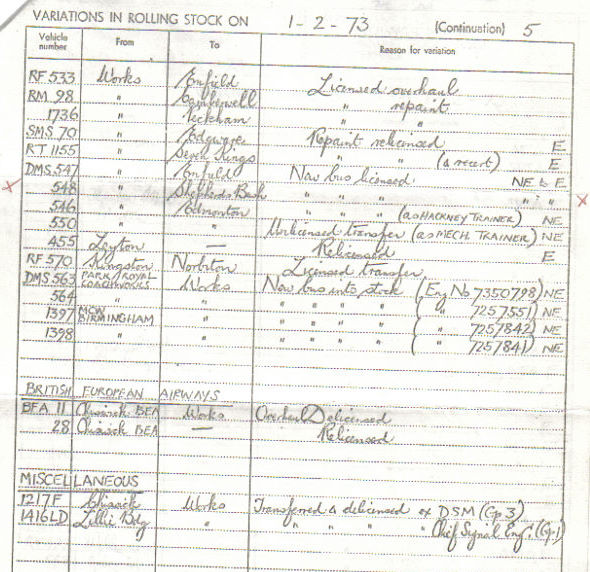 VARIATIONS IN ROLLING STOCK ON 1-2-73 (Continuation) 5
Vehicle number From To Reason for variation
RF 533 Works Enfield Licensed overhaul
RM 98 " Camberwell " repaint
1736 " Peckham " "
SMS 70 " Edgware Repaint relicensed E
RT 1155 " Seven Kings " " (& recert) E
DMS 547 " Enfield New bus licensed NE to E
x 548 " Shepherds Bush " " " " " " x
546 " Edmonton " " " (as HACKNEY TRAINER) NE
550 " " Unlicensed transfer (as MECH. TRAINER) NE
455 Leyton — Relicensed E
RF 570 Kingston Norbiton Licensed transfer
DMS 563 PARK ROYAL COACHWORKS Works New bus into stock (Eng No 7350798) NE
564 " " " " " " ( " 7257551) NE
1397 MCW BIRMINGHAM " " " " " ( " 7257842) NE
1398 " " " " " " ( " 7257841) NE
BRITISH EUROPEAN AIRWAYS
BEA 11 Chiswick BEA Works Overhaul Delicensed
28 Chiswick BEA — Relicensed
MISCELLANEOUS
1217F Chiswick Works Transferred & delicensed ex DSM (Gp 3)
1416LD Lillie Bdg " " " " " Chief Signal Engr (Gp.1)